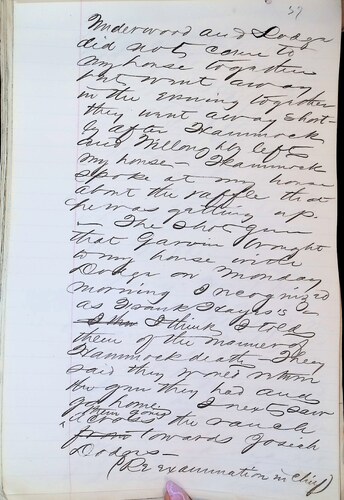 37
Underwood and Dodge
did not come to
my house together
but went away
in the evening together
they went away short-
ly after Hammock
and Willoughby left
my house - Hammock
spoke at my house
about the raffle that
he was getting up
- The shot gun
that Garvin brought
to my house with
Dodge on Monday
morning I recognized
as Frank Hayes's -
I think I told
them of the manner of
Hammock death - They
said they would return
the gun they had and
go home. I next saw
them going
across the ranch
from towards Josiah
Dodges -
(Re examination in chief)